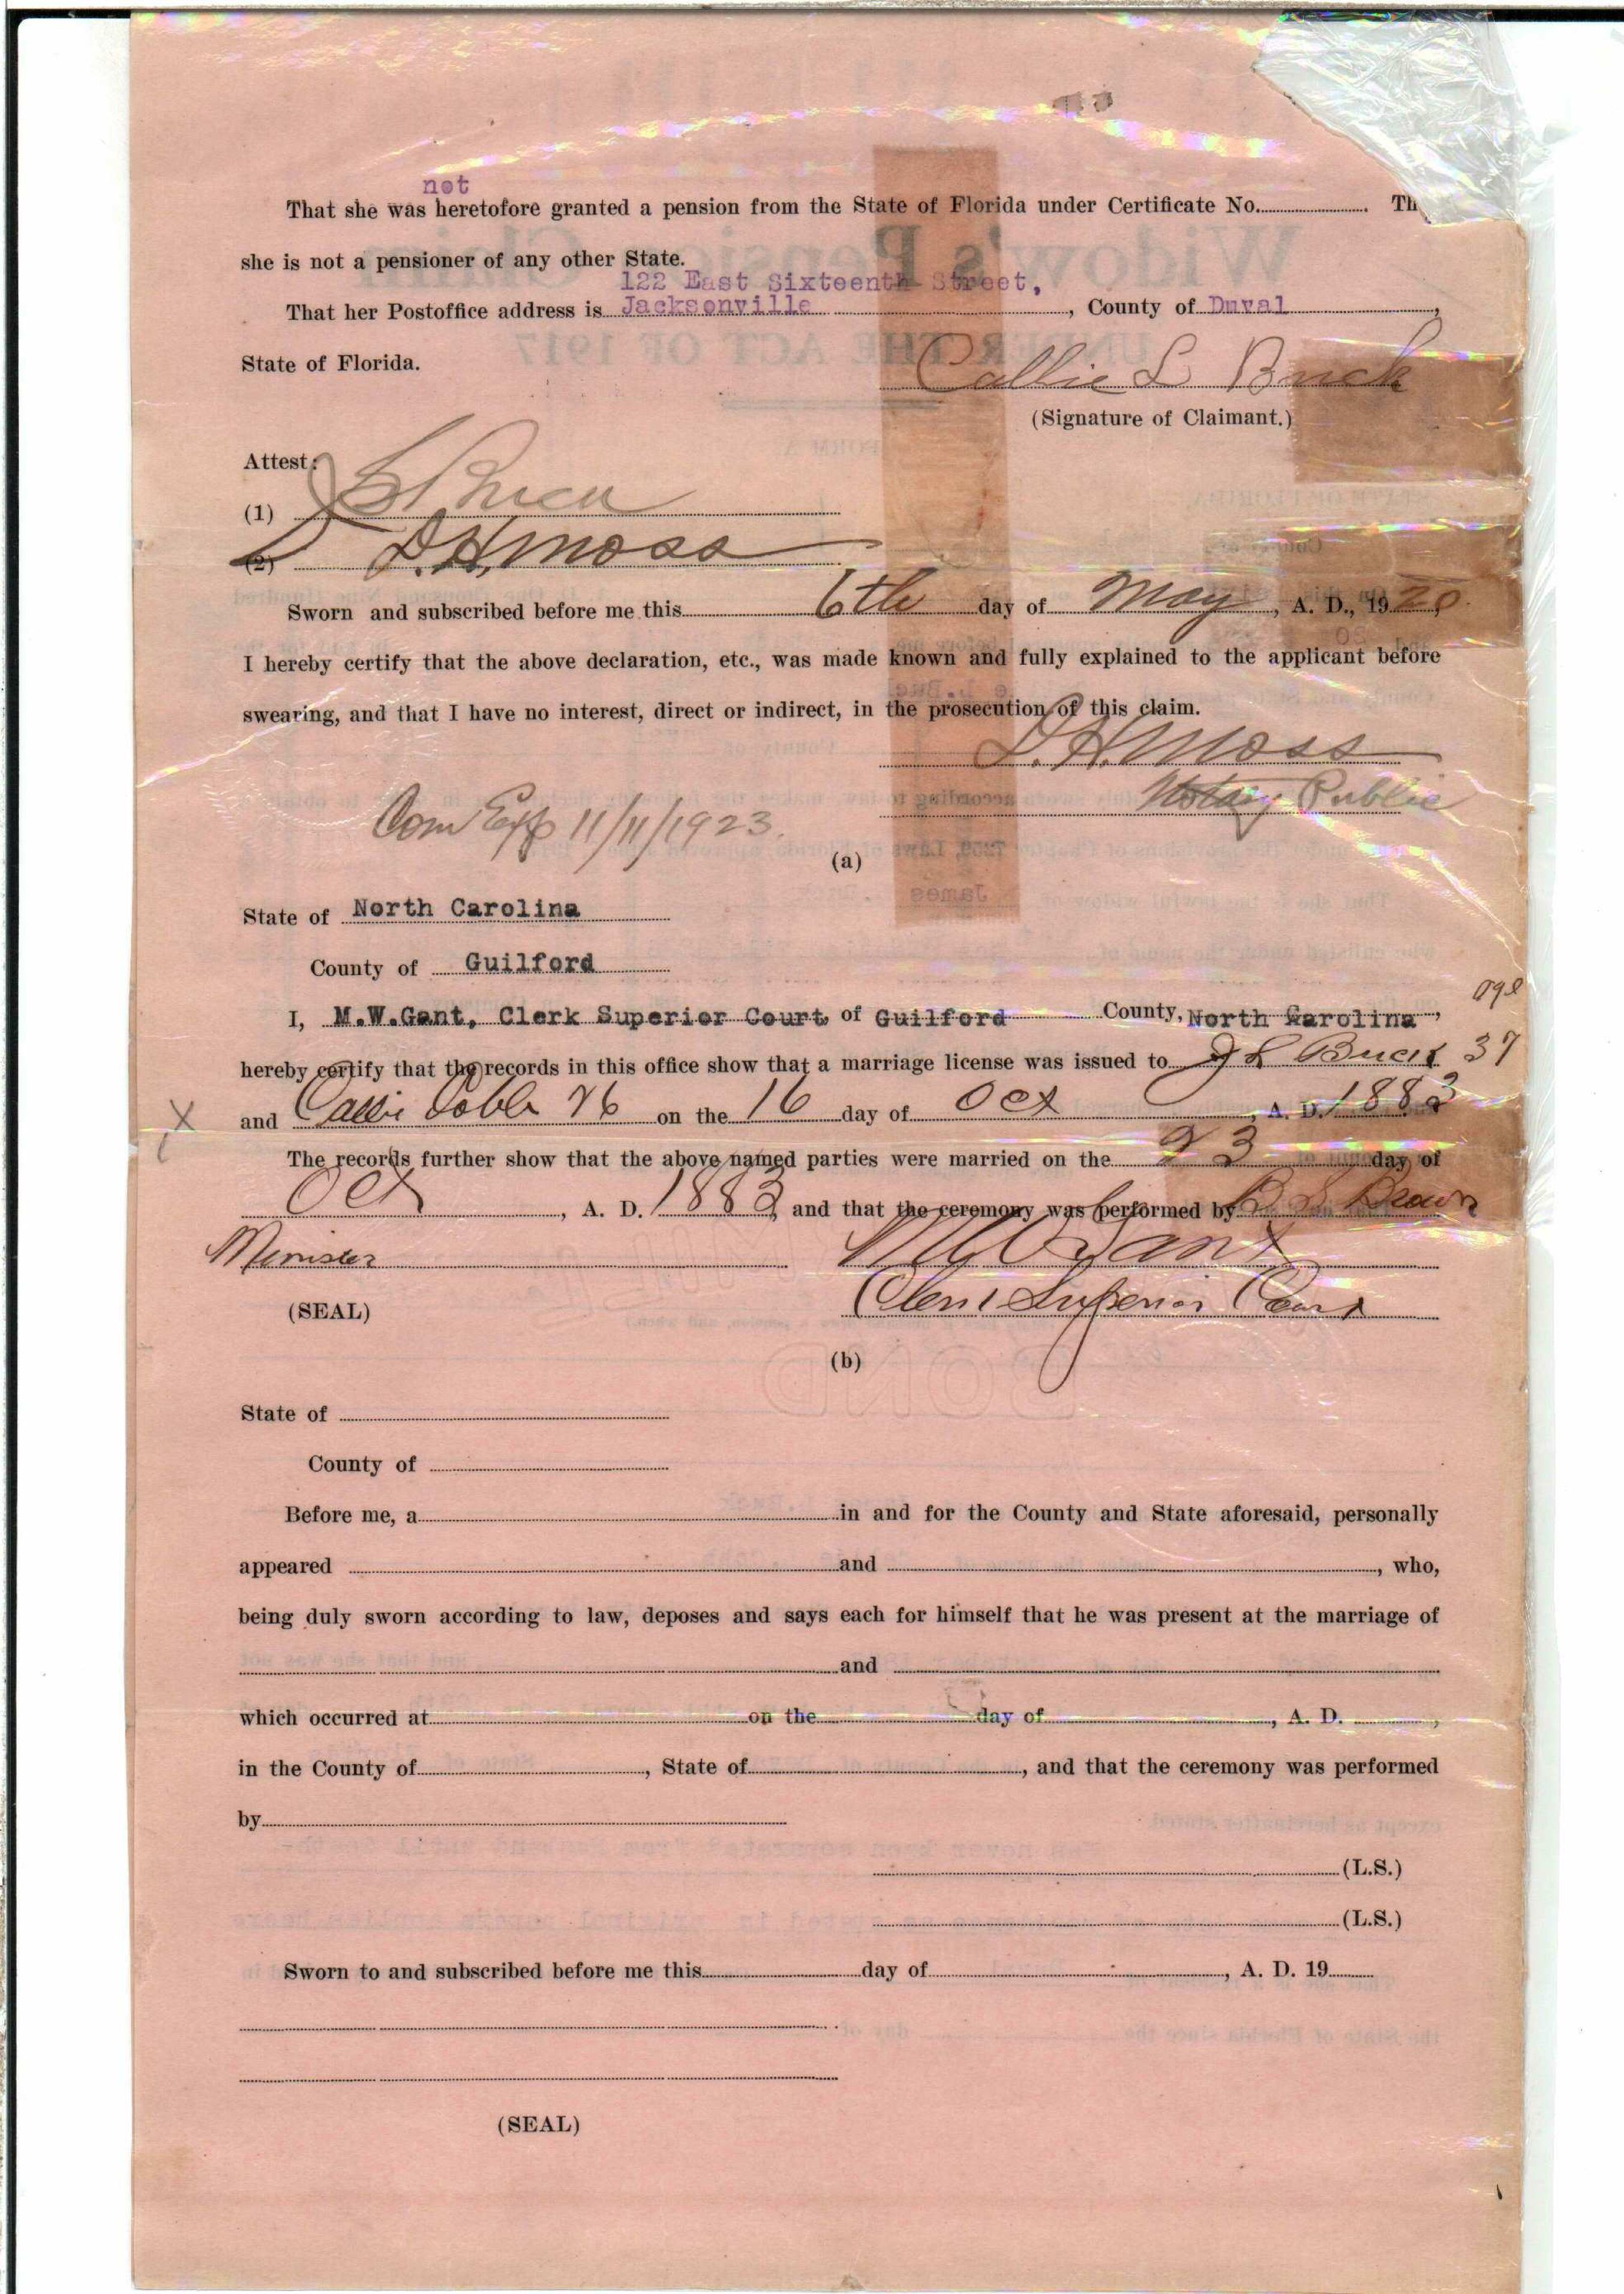 not
That she was heretofore granted a pension from the State of Florida under Certificate No. Th
she is not a pensioner of any other State.
122 East Sixteenth Street,
That her Postoffice address is Jacksonville, County of Duval,
State of Florida.
Callie L Buck
(Signature of Claimant.)
Attest:
(1)
(2) D.H. Moss
Sworn and subscribed before me this 6th day of May, A. D., 1920,
I hereby certify that the above declaration, etc., was made known and fully explained to the applicant before
swearing, and that I have no interest, direct or indirect, in the prosecution of this claim.
D. H. Moss
Notary Public
Com Exp 11/11/1923.
(a)
State of North Carolina
County of Guilford
age
I, M.W.Gant, Clerk Superior Court of Guilford County, North Carolina,
hereby certify that the records in this office show that a marriage license was issued to J L Buck 37
X and Callie 26 on the 16 day of Oct, A. D. 1883
The records further show that the above named parties were married on the 23 day of
Oct, A. D. 1883, and that the ceremony was performed by
Minister
M W Gant
(SEAL)
Clerk Superior Court
(b)
State of
County of
Before me, a in and for the County and State aforesaid, personally
appeared and , who,
being duly sworn according to law, deposes and says each for himself that he was present at the marriage of
and
which occurred at on the day of , A. D. ,
in the County of , State of , and that the ceremony was performed
by
(L.S.)
(L.S.)
Sworn to and subscribed before me this day of , A. D. 19
(SEAL)